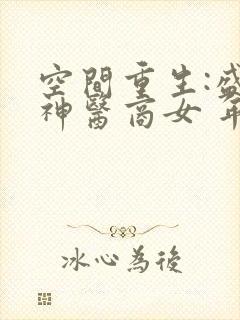 空間重生:盛
神醫商女 年
冰心為後